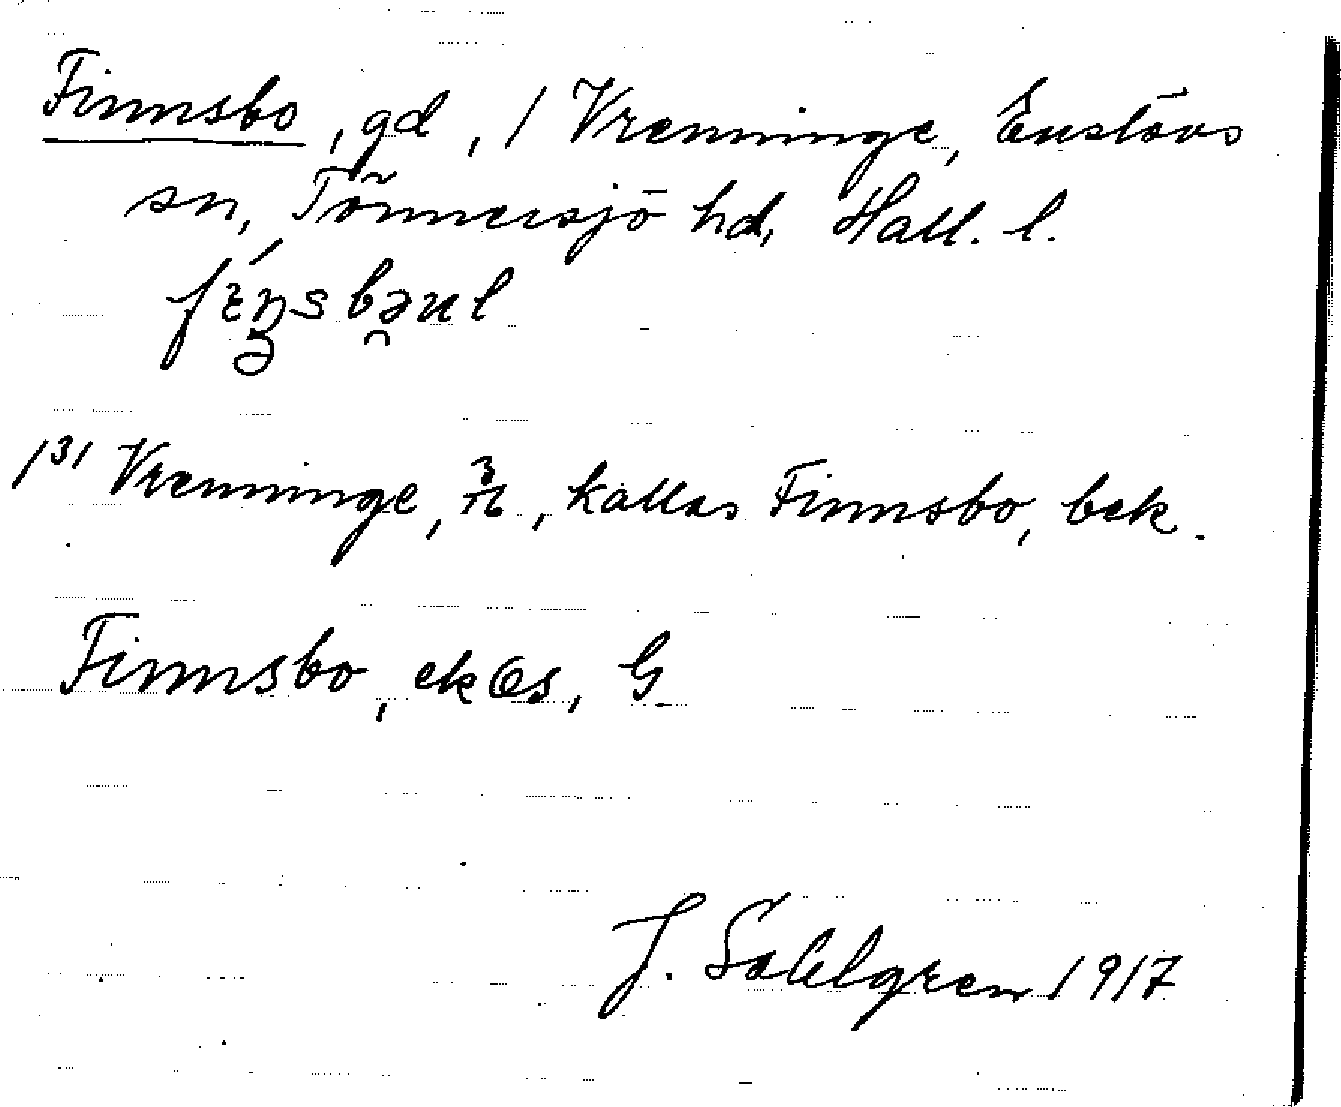 Finnsbo, gd, 1 Vrenninge, Enslövs
sn, Tönnersjö hd, Hall. l.
1³¹ Vrenninge, 3/16, kallas Finnsbo, bek.
Finnsbo, ek Ös, G
J. Sahlgren 1917